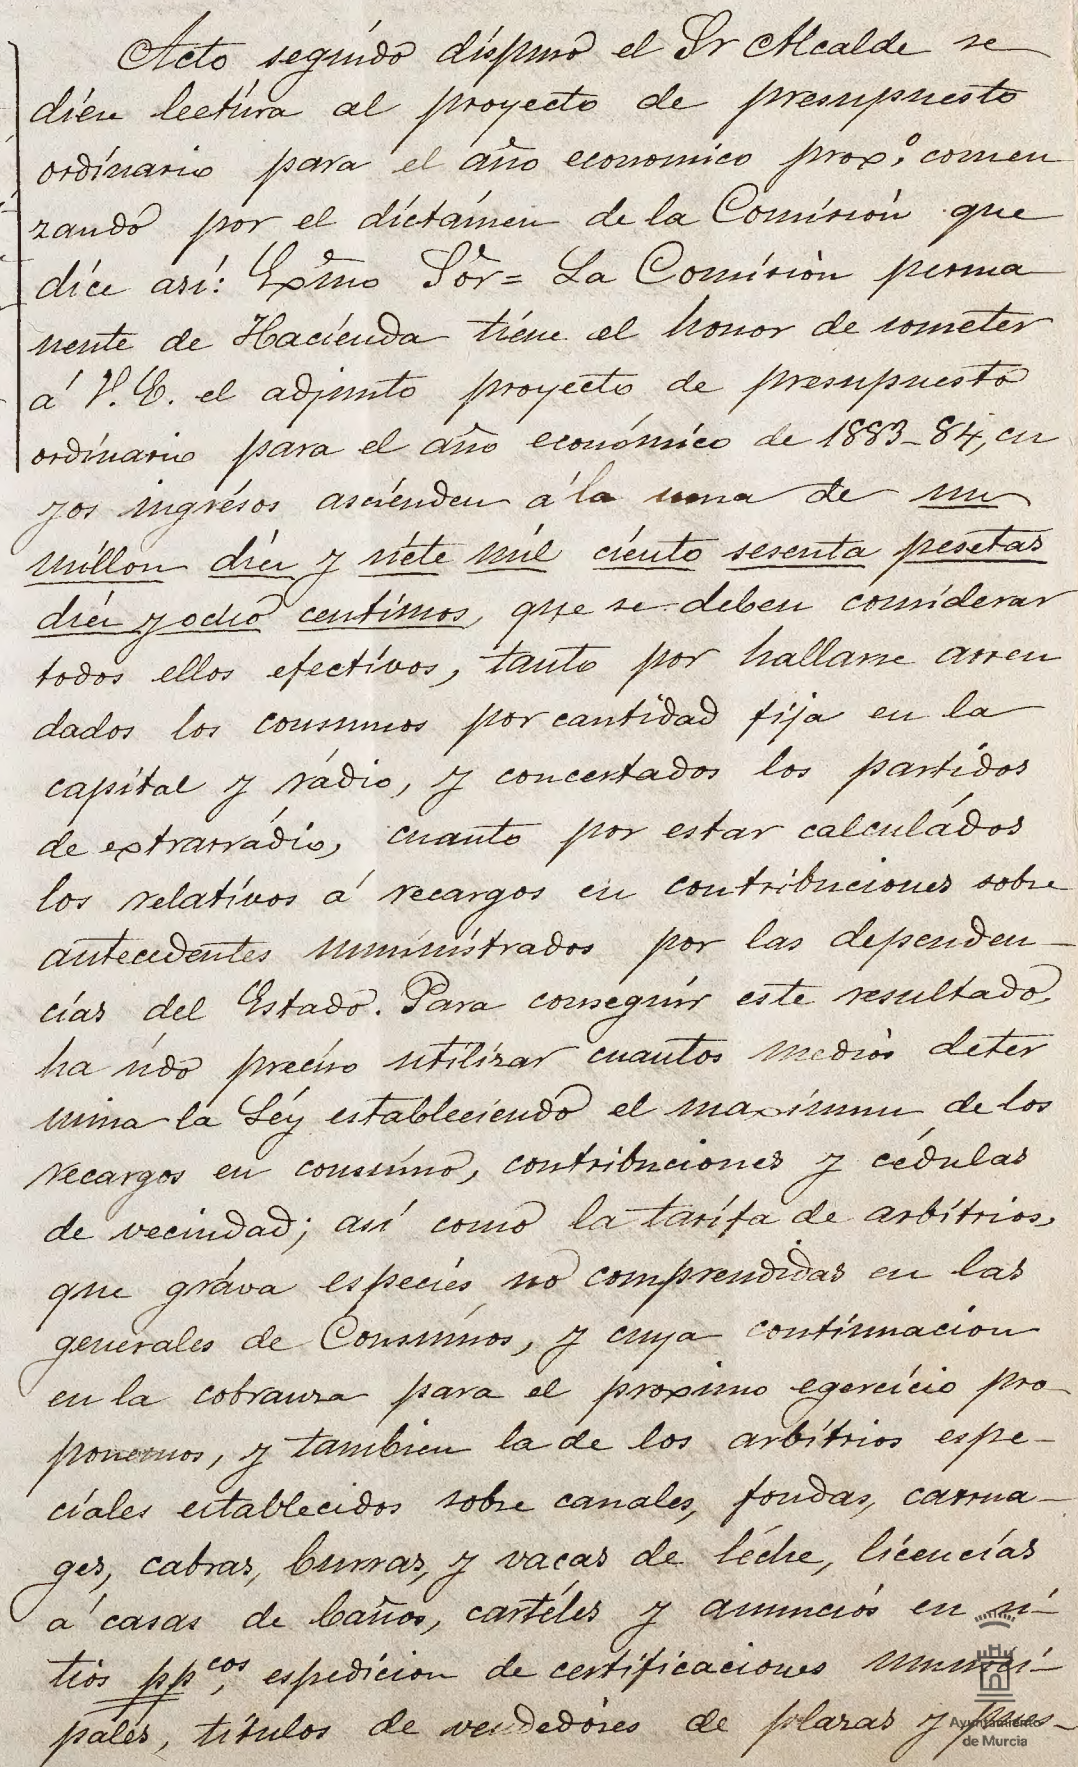 Acto seguido dispuso el Sr Alcalde se
diera lectura al proyecto de presupuesto
ordinario para el año economico prox.º comen
zando por el dictámen de la Comisión que
dice así: Exmo Sôr= La Comisiòn perma
nente de Hacienda tiene el honor de someter
á V. E. el adjunto proyecto de presupuesto
ordinario para el año económico de 1883-84, cu
yos ingrésos ascienden á la suma de un
millon diez y siete mil ciento sesenta pesetas
diez y ocho centimos, que se deben considerar
todos ellos efectivos, tanto por hallarse arren
dados los consumos por cantidad fija en la
capital y rádio, y concertados los partidos
de extrarrádio, cuanto por estar calculádos
los relativos á recargos en contribuciones sobre
antecedentes suministrados por las dependen-
cias del Estado. Para conseguir este resultado,
ha sido preciso utilizar cuantos medios deter
mina la Léy estableciendo el maximum de los
recargos en consumo, contribuciones y cédulas
de vecindad; así como la tarifa de arbitrios,
que gráva especies no comprendidas en las
generales de Consumos, y cuya continuacion
en la cobranza para el proximo egercicio pro-
ponemos, y tambien la de los arbitrios espe-
ciales establecidos sobre canales, fondas, carrua-
ges, cabras, burras, y vacas de léche, licencias
á casas de baños, cartéles y anuncios en si-
tios ppcos, espedicion de certificaciones munici-
pales, titulos de vendedores de plazas y pues-
Ayuntamiento
de Murcia